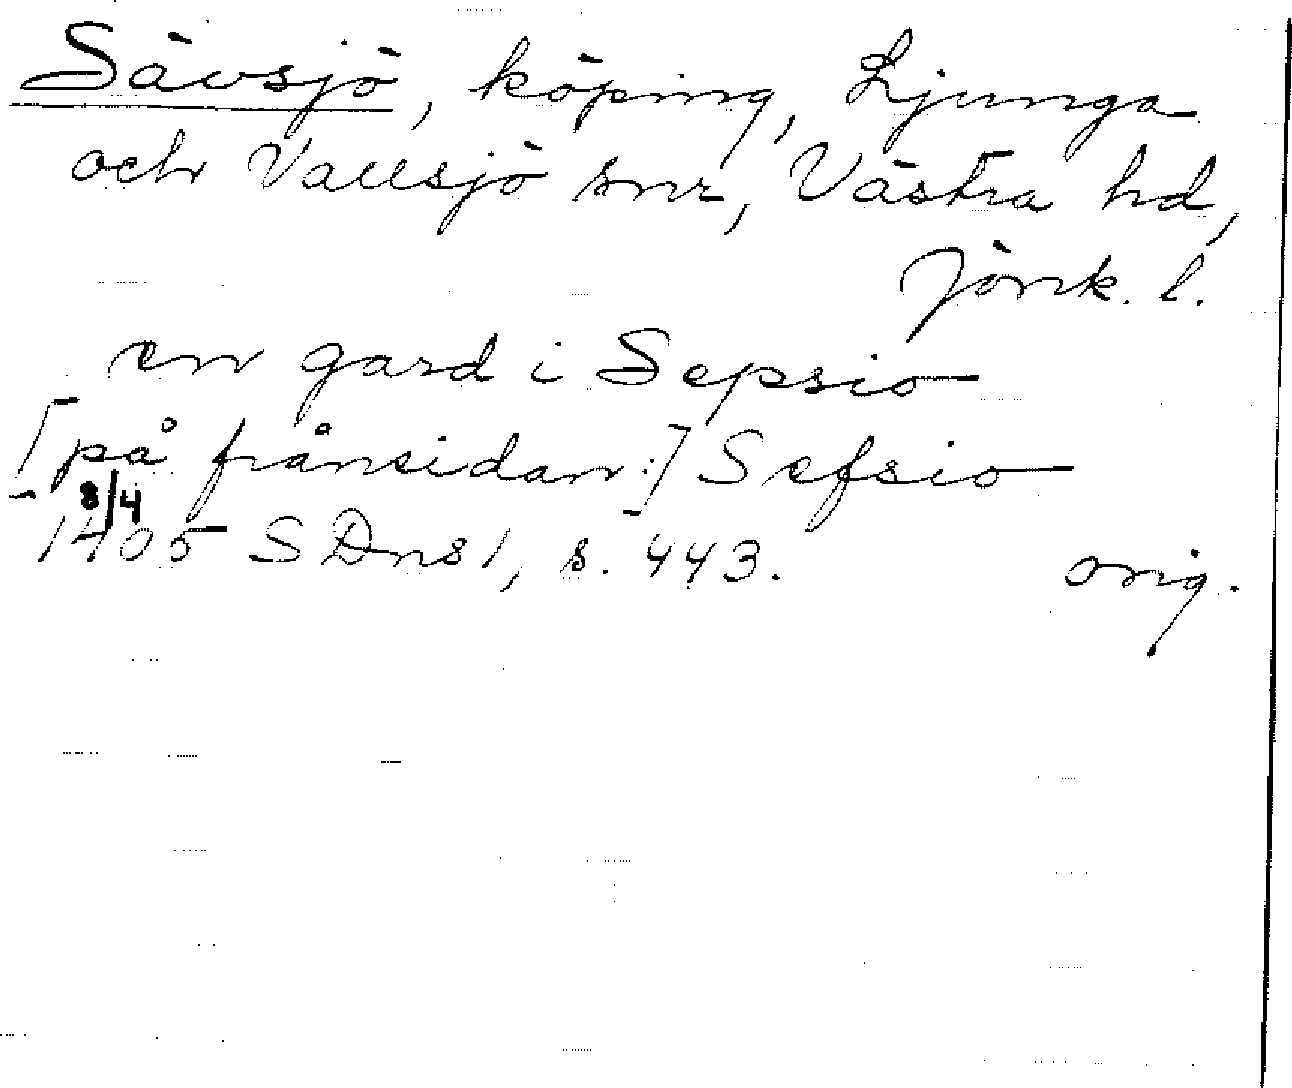 Sävsjö, köping, Ljunga
och Vallsjö snr, Västra hd,
Jönk. l.
en gard i Sepsio
[på frånsidan:] Sefsio
8/4
1405 SDns 1, s. 443. orig.